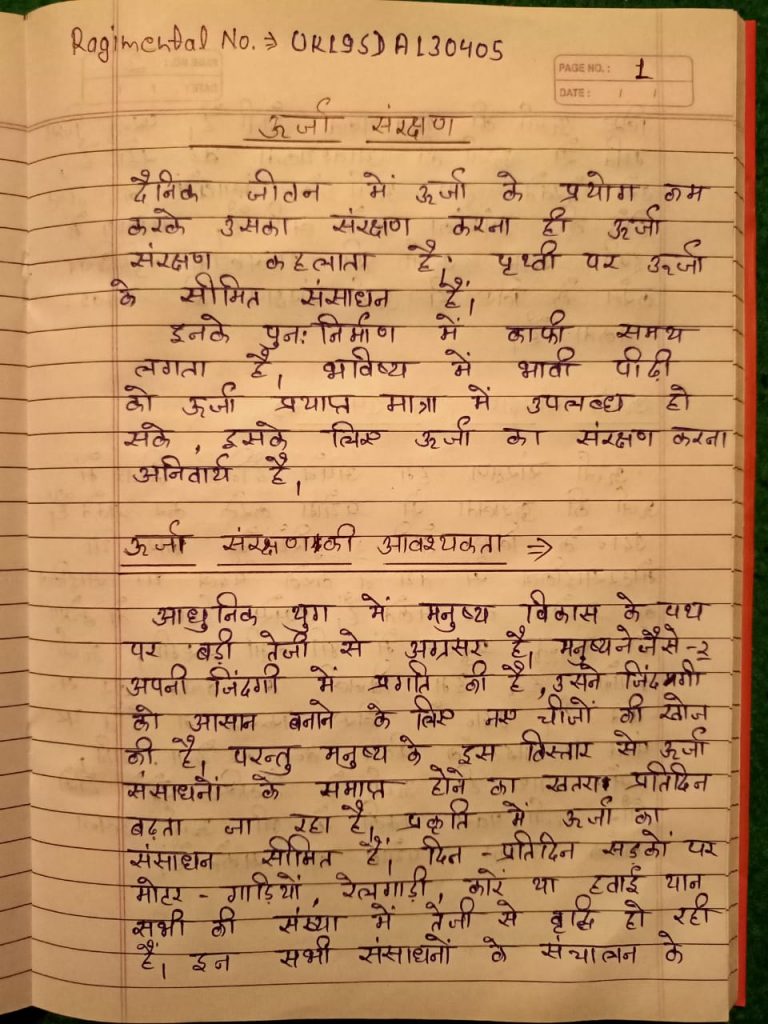 Ragimental No. ⇒ UK19SDA130405
PAGE NO.: 1
DATE: / /
ऊर्जा संरक्षण
दैनिक जीवन में ऊर्जा के प्रयोग कम
करके उसका संरक्षण करना ही ऊर्जा
संरक्षण कहलाता है। पृथ्वी पर ऊर्जा
के सीमित संसाधन हैं।
इनके पुन: निर्माण में काफी समय
लगता है। भविष्य में भावी पीढ़ी
को ऊर्जा प्रयाप्त मात्रा में उपलब्ध हो
सके, इसके लिए ऊर्जा का संरक्षण करना
अनिवार्य है।
ऊर्जा संरक्षण की आवश्यकता ⇒
आधुनिक युग में मनुष्य विकास के पथ
पर बड़ी तेजी से अग्रसर है। मनुष्य ने जैसे-२
अपनी जिंदगी में प्रगति की है, उसने जिंदगी
को आसान बनाने के लिए नए चीजों की खोज
की है। परन्तु मनुष्य के इस विस्तार से ऊर्जा
संसाधनों के समाप्त होने का खतरा प्रतिदिन
बढ़ता जा रहा है। प्रकृति में ऊर्जा का
संसाधन सीमित हैं। दिन-प्रतिदिन सड़कों पर
मोटर-गाड़ियों, रेलगाड़ी, कारें या हवाई यान
सभी की संख्या में तेजी से वृद्धि हो रही
हैं। इन सभी संसाधनों के संचालन के